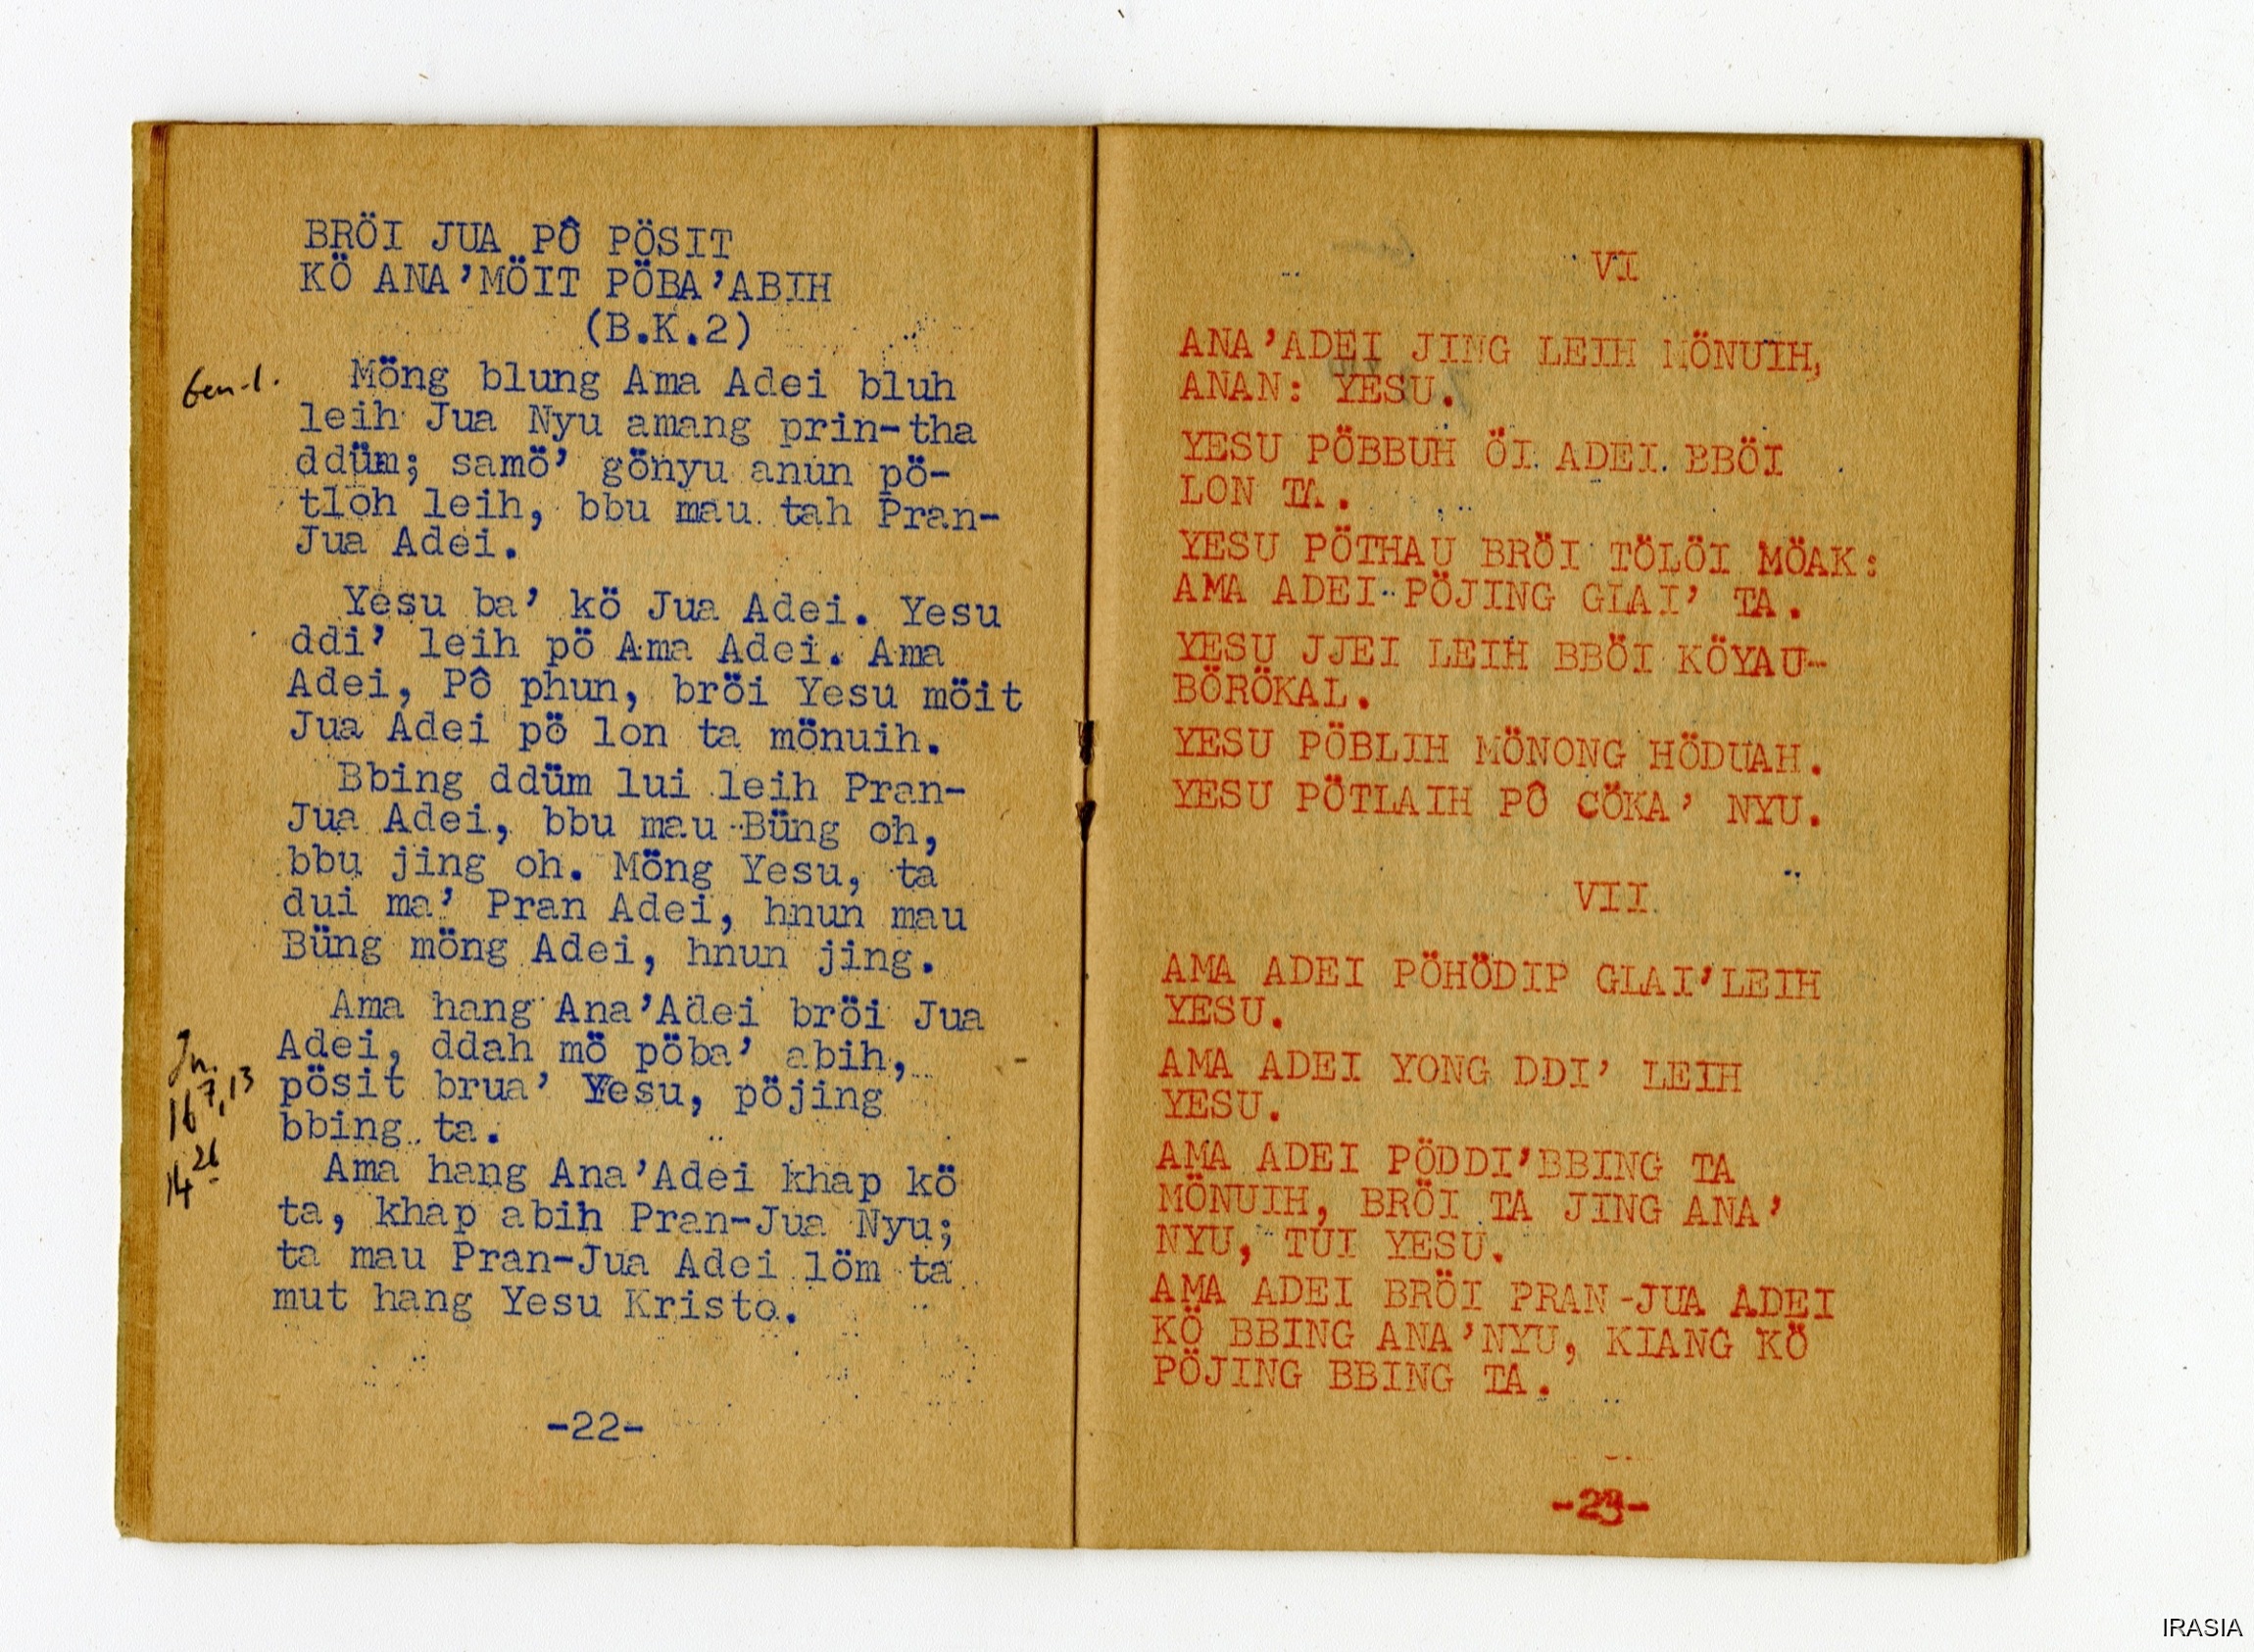 BRÖI JUA PÔ PÖSIT
KÖ ANA'MÖIT PÖBA'ABIH
(B.K.2)
Gen-1.
Möng blung Ama Adei bluh
leih Jua Nyu amang prin-tha
ddüm; samö' gönyu anun pö-
tloh leih, bbu mau tah Pran-
Jua Adei.
Yesu ba' kö Jua Adei. Yesu
ddi' leih pö Ama Adei. Ama
Adei, Pô phun, bröi Yesu möit
Jua Adei pö lon ta mönuih.
Bbing ddüm lui leih Pran-
Jua Adei, bbu mau Büng oh,
bbu jing oh. Möng Yesu, ta
dui ma' Pran Adei, hnun mau
Büng möng Adei, hnun jing.
Ama hang Ana'Adei bröi Jua
Adei, ddah mö pöba' abih,
pösit brua' Yesu, pöjing
bbing ta.
Jn.
16 7,13
14 26
Ama hang Ana'Adei khap kö
ta, khap abih Pran-Jua Nyu;
ta mau Pran-Jua Adei löm ta
mut hang Yesu Kristo.
-22-
VI
ANA'ADEI JING LEIH MÖNUIH,
ANAN: YESU.
YESU PÖBBUH ÖI ADEI BBÖI
LON TA.
YESU PÖTHAU BRÖI TÖLÖI MÖAK:
AMA ADEI PÖJING GLAI' TA.
YESU JJEI LEIH BBÖI KÖYAU-
BÖRÖKAL.
YESU PÖBLIH MÖNONG HÖDUAH.
YESU PÖTLAIH PÔ CÖKA' NYU.
VII
AMA ADEI PÖHÖDIP GLAI'LEIH
YESU.
AMA ADEI YONG DDI' LEIH
YESU.
AMA ADEI PÖDDI'BBING TA
MÖNUIH, BRÖI TA JING ANA'
NYU, TUI YESU.
AMA ADEI BRÖI PRAN-JUA ADEI
KÖ BBING ANA'NYU, KIANG KÖ
PÖJING BBING TA.
-23-
IRASIA